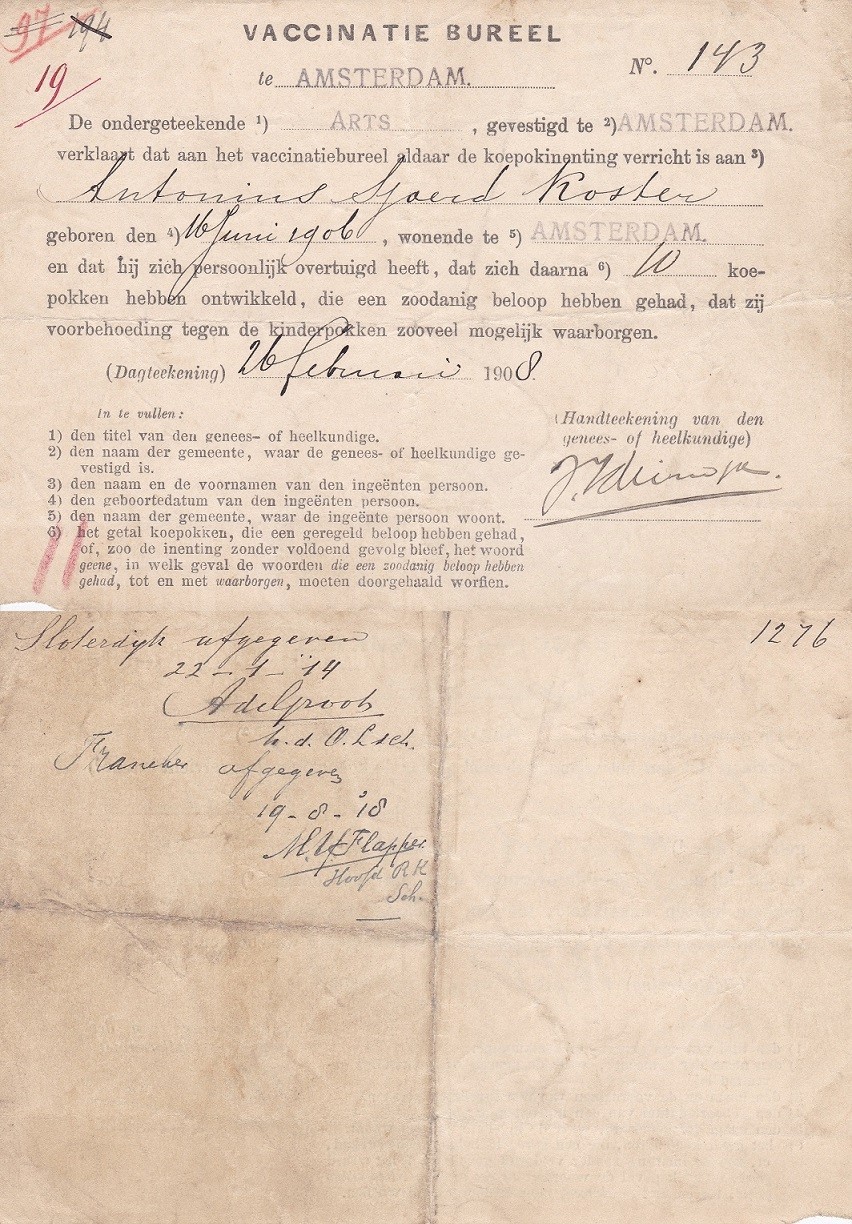 97 194
VACCINATIE BUREEL
19
te AMSTERDAM. No. 143
De ondergeteekende 1) ARTS, gevestigd te 2) AMSTERDAM.
verklaart dat aan het vaccinatiebureel aldaar de koepokinenting verricht is aan 3)
Antonius Sjoerd Koster
geboren den 4) 16 Juni 1906, wonende te 5) AMSTERDAM.
en dat hij zich persoonlijk overtuigd heeft, dat zich daarna 6) 10 koe-
pokken hebben ontwikkeld, die een zoodanig beloop hebben gehad, dat zij
voorbehoeding tegen de kinderpokken zooveel mogelijk waarborgen.
(Dagteekening) 26 februari 1908.
In te vullen:
1) den titel van den genees- of heelkundige.
2) den naam der gemeente, waar de genees- of heelkundige ge-
vestigd is.
3) den naam en de voornamen van den ingeënten persoon.
4) den geboortedatum van den ingeënten persoon.
5) den naam der gemeente, waar de ingeënte persoon woont.
6) het getal koepokken, die een geregeld beloop hebben gehad,
of, zoo de inenting zonder voldoend gevolg bleef, het woord
geene, in welk geval de woorden die een zoodanig beloop hebben
gehad, tot en met waarborgen, moeten doorgehaald worden.
(Handteekening van den
genees- of heelkundige)
Sloterdyk afgegeven
22-1-'14
A de Groot
h.d. O.L.sch.
Franeker afgegeven
19-8-'18
Flapper
Hoofd R K
Sch.
1276